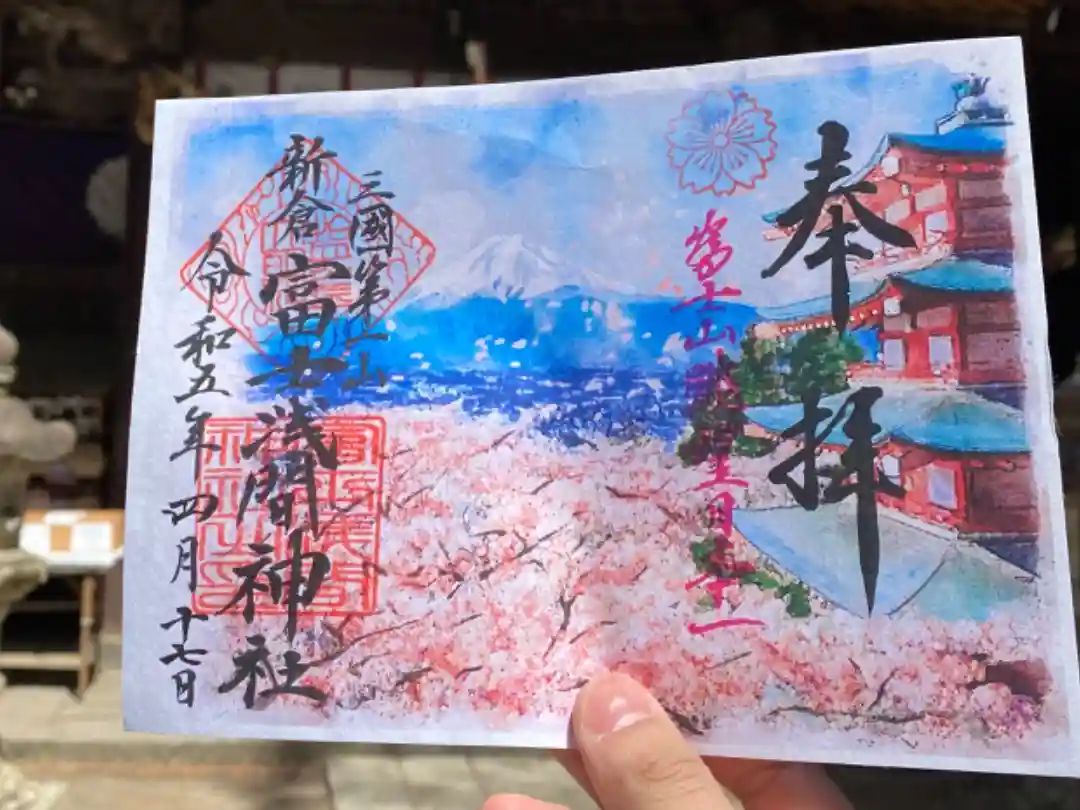 奉拝
富士山眺望日本一
三國第一山
新倉富士浅間神社
令和五年四月十七日